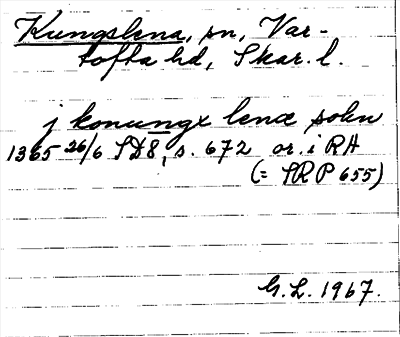 Kungslena, sn, Var-
tofta hd, Skar. l.
j konungx lenæ sokn
1365 26/6 SD8, s. 672 or. i RA
(= SRP 655)
G.L. 1967.